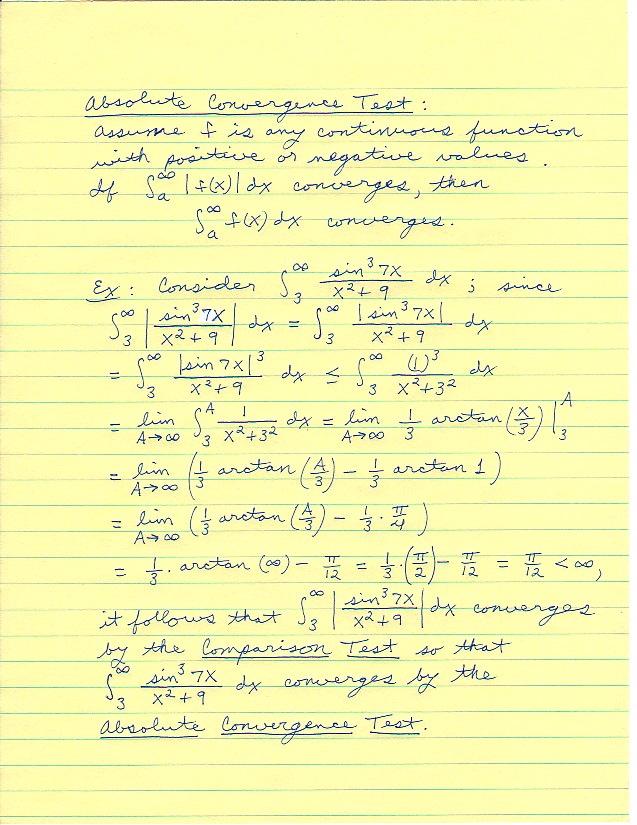 Absolute Convergence Test :
Assume f is any continuous function
with positive or negative values .
If ∫_a^∞ |f(x)| dx converges, then
∫_a^∞ f(x) dx converges.
Ex : Consider ∫_3^∞ (sin^3 7x)/(x^2+9) dx ; since
∫_3^∞ |(sin^3 7x)/(x^2+9)| dx = ∫_3^∞ |sin^3 7x|/(x^2+9) dx
= ∫_3^∞ |sin 7x|^3/(x^2+9) dx ≤ ∫_3^∞ (1)^3/(x^2+3^2) dx
= lim_{A→∞} ∫_3^A 1/(x^2+3^2) dx = lim_{A→∞} 1/3 arctan(x/3) |_3^A
= lim_{A→∞} (1/3 arctan(A/3) − 1/3 arctan 1)
= lim_{A→∞} (1/3 arctan(A/3) − 1/3 · π/4)
= 1/3 · arctan(∞) − π/12 = 1/3 · (π/2) − π/12 = π/12 < ∞,
it follows that ∫_3^∞ |(sin^3 7x)/(x^2+9)| dx converges
by the Comparison Test so that
∫_3^∞ (sin^3 7x)/(x^2+9) dx converges by the
Absolute Convergence Test.